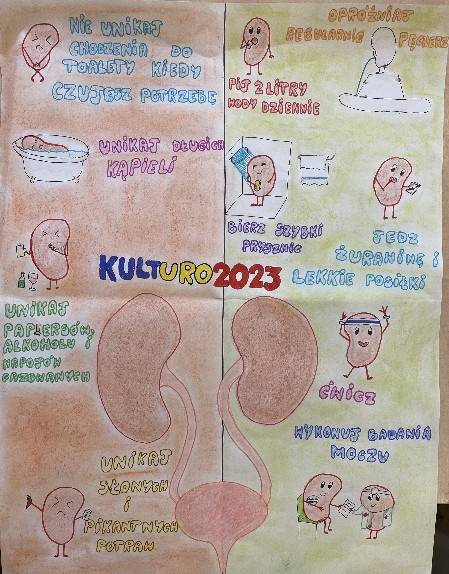 NIE UNIKAJ
CHODZENIA DO
TOALETY KIEDY
CZUJESZ POTRZEBĘ
OPRÓŻNIAJ
REGULARNIE PĘCHERZ
PIJ 2 LITRY
WODY DZIENNIE
UNIKAJ DŁUGICH
KĄPIELI
BIERZ SZYBKI
PRYSZNIC
JEDZ
ŻURAWINĘ I
LEKKIE POSIŁKI
KULTURO2023
UNIKAJ
PAPIEROSÓW,
ALKOHOLU I
NAPOJÓW
GAZOWANYCH
ĆWICZ
WYKONUJ BADANIA
MOCZU
UNIKAJ
SŁONYCH
I
PIKANTNYCH
POTRAW